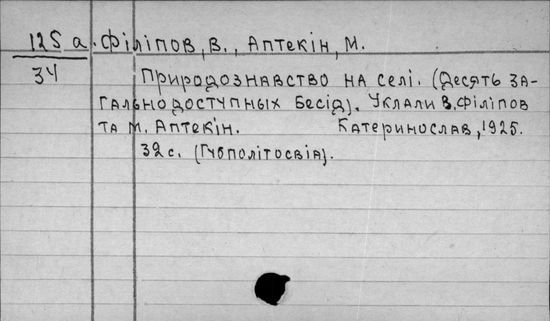 125 а. Філіпов, В., Аптекін, М.
34
Природознавство на селі. (Десять за-
гальнодоступных бесід). Уклали В. Філіпов
та М. Аптекін. Катеринослав, 1925.
32 с. (Губполітосвіа).